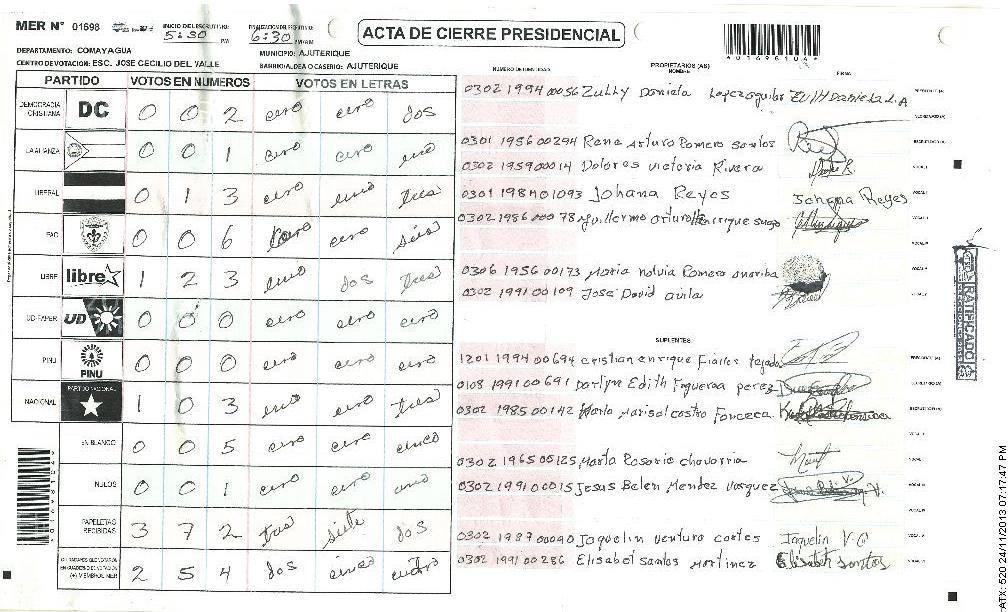 MER N° 01698 INICIO DEL ESCRUTINIO: 5:30 PM FINALIZACION ESCRUTINIO: 6:30 PM/AM
ACTA DE CIERRE PRESIDENCIAL
*01698104*
DEPARTAMENTO: COMAYAGUA MUNICIPIO: AJUTERIQUE
CENTRO DE VOTACION: ESC. JOSE CECILIO DEL VALLE BARRIO/ALDEA O CASERIO: AJUTERIQUE
PARTIDO VOTOS EN NUMEROS VOTOS EN LETRAS
DEMOCRACIA CRISTIANA DC 0 0 2 cero cero dos
LA ALIANZA 0 0 1 cero cero uno
LIBERAL 0 1 3 cero uno tres
FAC 0 0 6 cero cero seis
LIBRE libre 1 2 3 uno dos tres
UD-FAPER UD 0 0 0 cero cero cero
PINU PINU 0 0 0 cero cero cero
NACIONAL PARTIDO NACIONAL 1 0 3 uno cero tres
EN BLANCO 0 0 5 cero cero cinco
NULOS 0 0 1 cero cero uno
PAPELETAS RECIBIDAS 3 7 2 tres siete dos
CIUDADANOS QUE VOTARON EN CUADERNO DE VOTACION (+) MIEMBROS MER 2 5 4 dos cinco cuatro
NUMERO DE IDENTIDAD PROPIETARIOS (AS) NOMBRE FIRMA
0302 1994 00056 Zully Daniela Lopez aguilar Zully Daniela L.A PRESIDENTE (A)
SECRETARIO (A)
0301 1956 00294 Rene Arturo Romero Santos ESCRUTADOR (A)
0302 1959 00014 Dolores victoria Rivera VOCAL I
0301 1984 01093 Johana Reyes Johana Reyes
0302 1986 00078 Guillermo Arturo
0306 1956 00173 Maria Romero
0302 1991 00109 Jose David avila
SUPLENTES
1201 1994 00694 cristian enrique tejada PRESIDENTE (A)
0108 1991 00691 Darlyn Edith Figueroa perez SECRETARIO (A)
0302 1985 00142 Marisol castro Fonceca ESCRUTADOR (A)
0302 1965 00125 Marta Rosario chavarria
0302 1991 00015 Jesus Belen Mendez vasquez
0302 1987 00090 Jaquelin ventura cortes Jaquelin V.C
0302 1991 00286 Elisabet santos Martinez Elisabet santos
RATIFICADO
ATX: 520 24/11/2013 07:17:47 PM